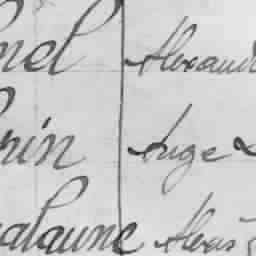 nel Alexand
rin Ange
alaune Alexis